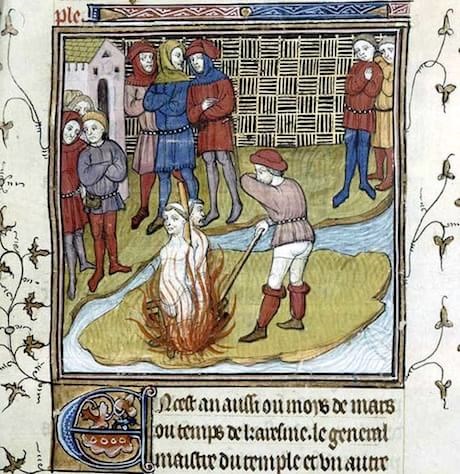 ple.
ENcest an aussi ou moys de mars
ou temps de karesme. le general
maistre du temple et vn autre